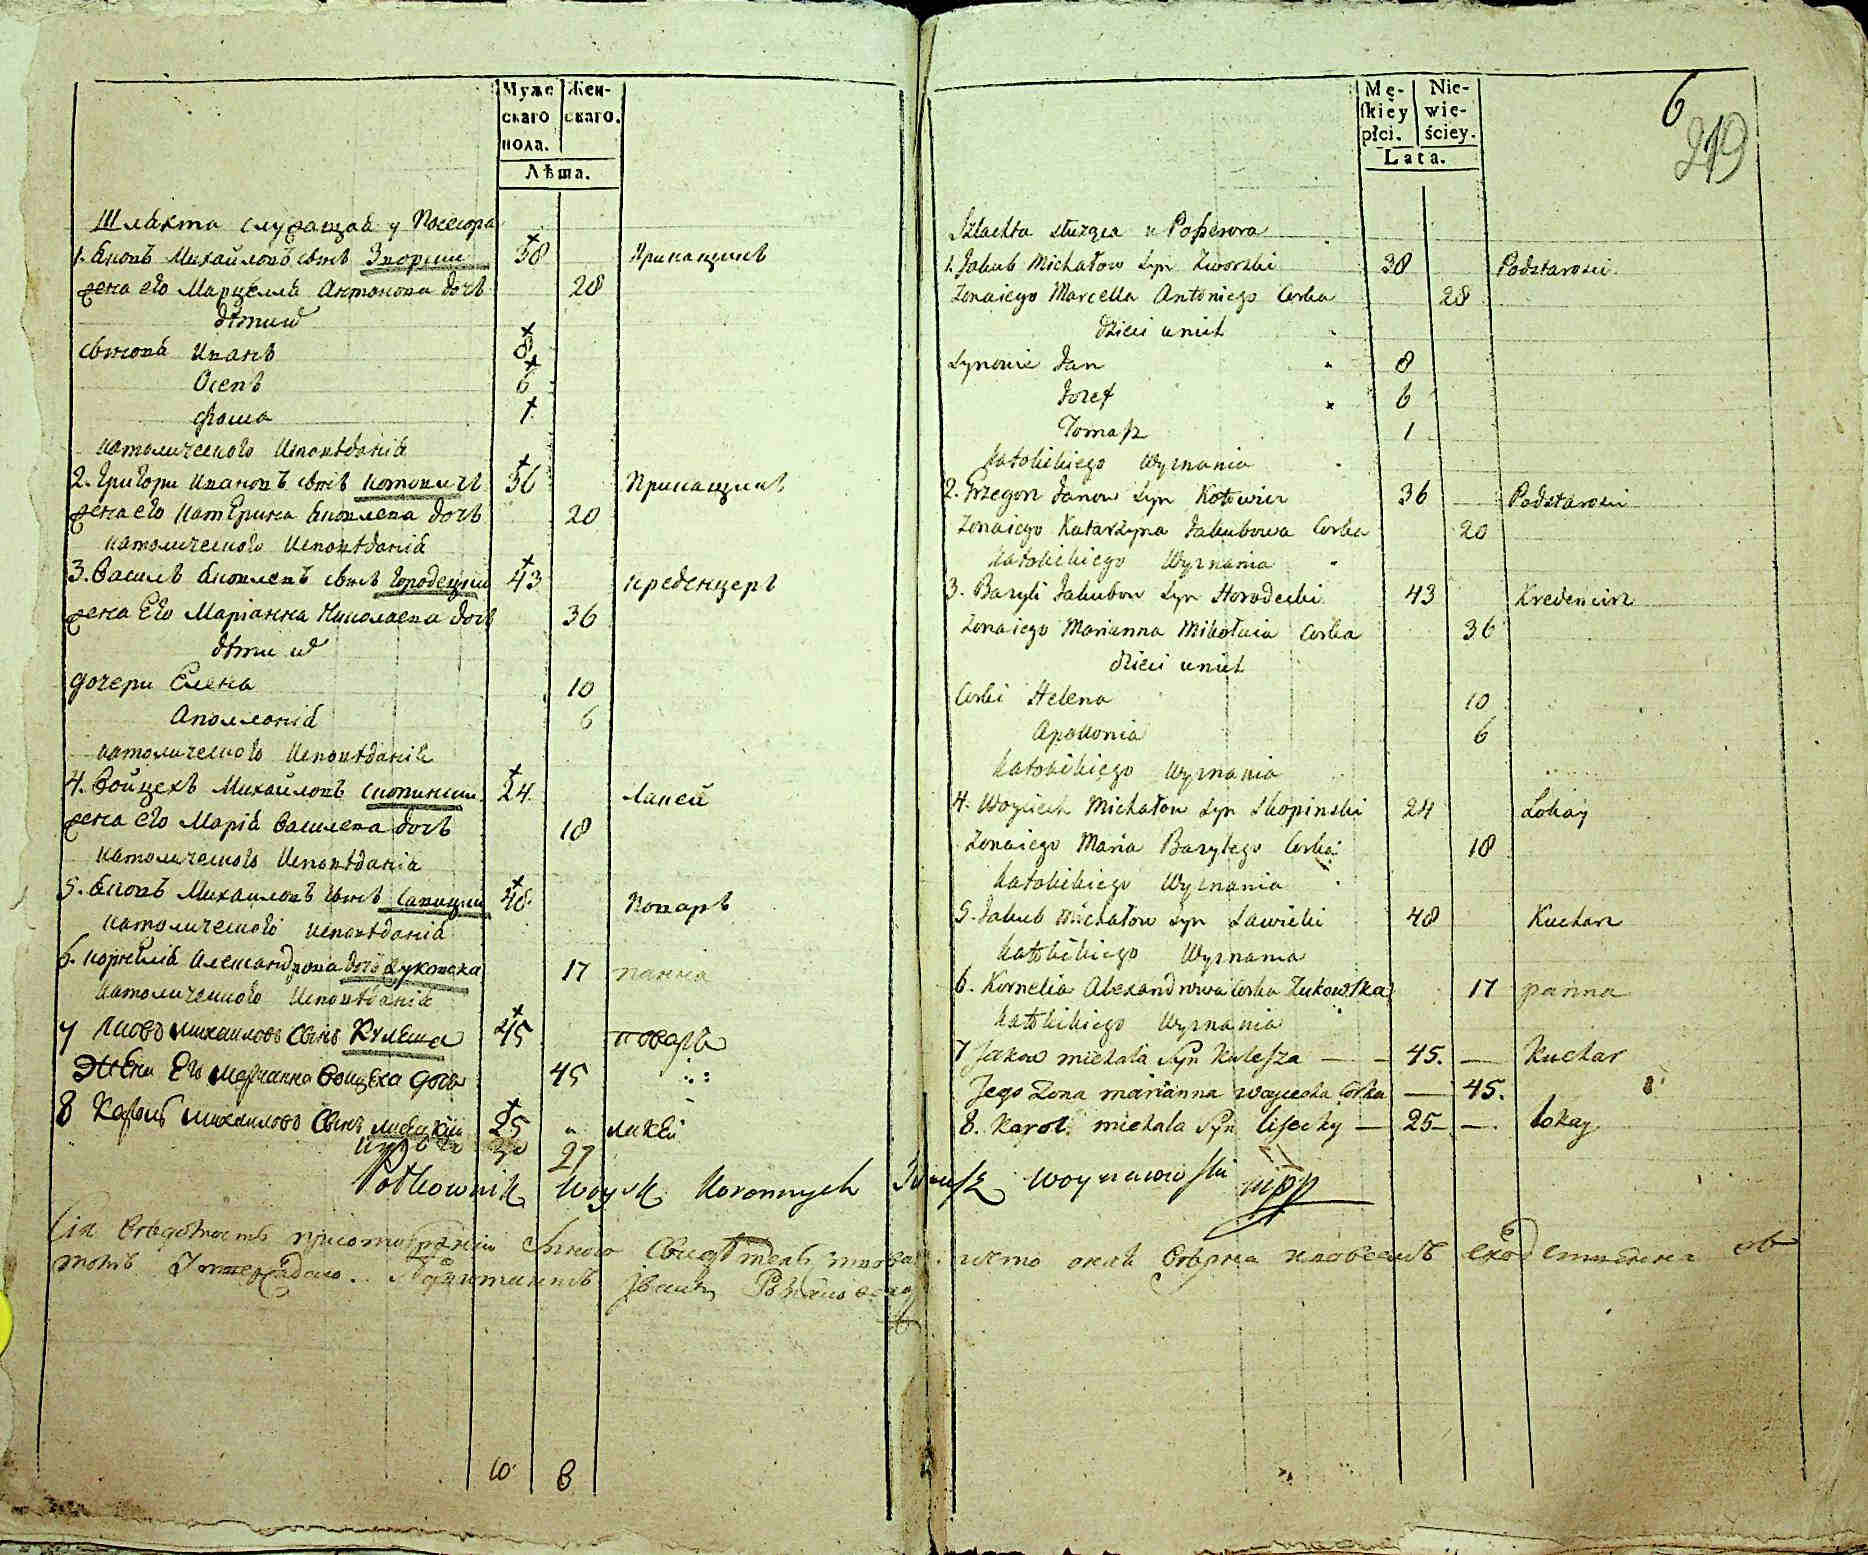 Муже
скаго
пола.
Жен-
скаго.
Лѣта.
Шляхта служащая у Посесора
1. Яковъ Михайловъ сынъ Зворски 38 Прикащикъ
жена его Марцелла Антонова дочь 28
дѣти их
сыновя Иванъ 8
Осепъ 6
Фома 1
католического Исповѣданія
2. Григори Ивановъ сынъ Котовичъ 36 Прикащикъ
жена его Катерина Яковлева дочь 20
католического Исповѣданія
3. Василь Яковлевъ сынъ Городецки 43 креденцеръ
жена Его Маріанна Николаева дочь 36
дѣти их
дочери Елена 10
Аполлонія 6
католического Исповѣданія
4. Войцехъ Михайловъ Скопински 24 Лакей
жена его Марія Василева дочь 18
католического Исповѣданія
5. Яковъ Михаиловъ сынъ Савицки 48 Поваръ
католического исповѣданія
6. Корнелія Александрова дочь Жуковска 17 панна
католического Исповѣданія
7 Яковъ михаиловъ Сынъ Кулеша 45 поваръ
Жена Его Марианна Воицеха дочь 45
8 Кароль михаиловъ Сынъ лисецкій 25 лакей
30 27
Połkownik Woysk Koronnych
10 8
Mę-
skiéy
płci.
Nie-
wie-
ściey.
Lata.
6
219
Szlachta słuząca u Possesora
1. Jakub Michałow Syn Zworski 38 Podstarosci
Zona iego Marcella Antoniego Corka 28
dzieci u nich
Synowie Jan 8
Jozef 6
Tomasz 1
Katolickiego Wyznania
2. Grzegorz Janow Syn Kotowicz 36 Podstarosci
Zona iego Katarzyna Jakubowa Corka 20
Katolickiego Wyznania
3. Bazyli Jakubow Syn Horodecki 43 Kredencirz
Zona iego Marianna Mikołaia Corka 36
dzieci u nich
Corki Helena 10
Apollonia 6
Katolickiego Wyznania
4. Woyciech Michałow Syn Skopinski 24 Lokay
Zona iego Maria Bazylego Corka 18
Katolickiego Wyznania
5. Jakub Michałow Syn Sawicki 48 Kucharz
Katolickiego Wyznania
6. Kornelia Alexandrowa Corka Zukowska 17 panna
Katolickiego Wyznania
7 Jakow michala Syn Kulesza — — 45. — Kuchar
Jego Zona marianna woyciecha Corka — 45.
8. Karol michala Syn lisecky — 25 — — lokay